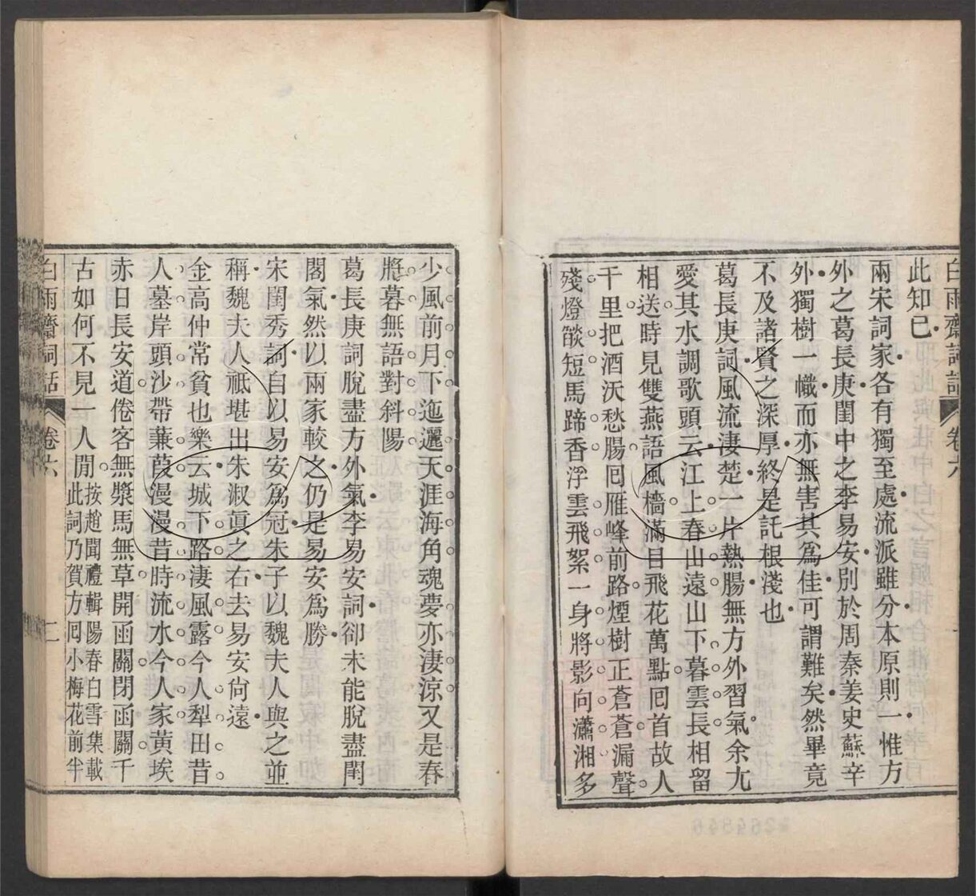 白雨齋詞話 卷六
此知已
兩宋詞家各有獨至處流派雖分本原則一惟方
外之葛長庚閨中之李易安別於周秦姜史蘇辛
外獨樹一幟而亦無害其爲佳可謂難矣然畢竟
不及諸賢之深厚終是託根淺也
葛長庚詞風流淒楚一片熱腸無方外習氣余尢
愛其水調歌頭云江上春山遠山下暮雲長相留
相送時見雙燕語風檣滿目飛花萬點囘首故人
千里把酒沃愁腸囘雁峰前路煙樹正蒼蒼漏聲
殘燈燄短馬蹄香浮雲飛絮一身將影向瀟湘多
少風前月下迤邐天涯海角魂夢亦淒涼又是春
將暮無語對斜陽
葛長庚詞脫盡方外氣李易安詞卻未能脫盡閨
閣氣然以兩家較之仍是易安爲勝
宋閨秀詞自以易安爲冠朱子以魏夫人與之並
稱魏夫人祗堪出朱淑眞之右去易安尙遠
金高仲常貧也樂云城下路淒風露今人犁田昔
人墓岸頭沙帶蒹葭漫漫昔時流水今人家黃埃
赤日長安道倦客無漿馬無草開函關閉函關千
古如何不見一人閒按趙聞禮輯陽春白雪集載
此詞乃賀方囘小梅花前半
白雨齋詞話 卷六 二